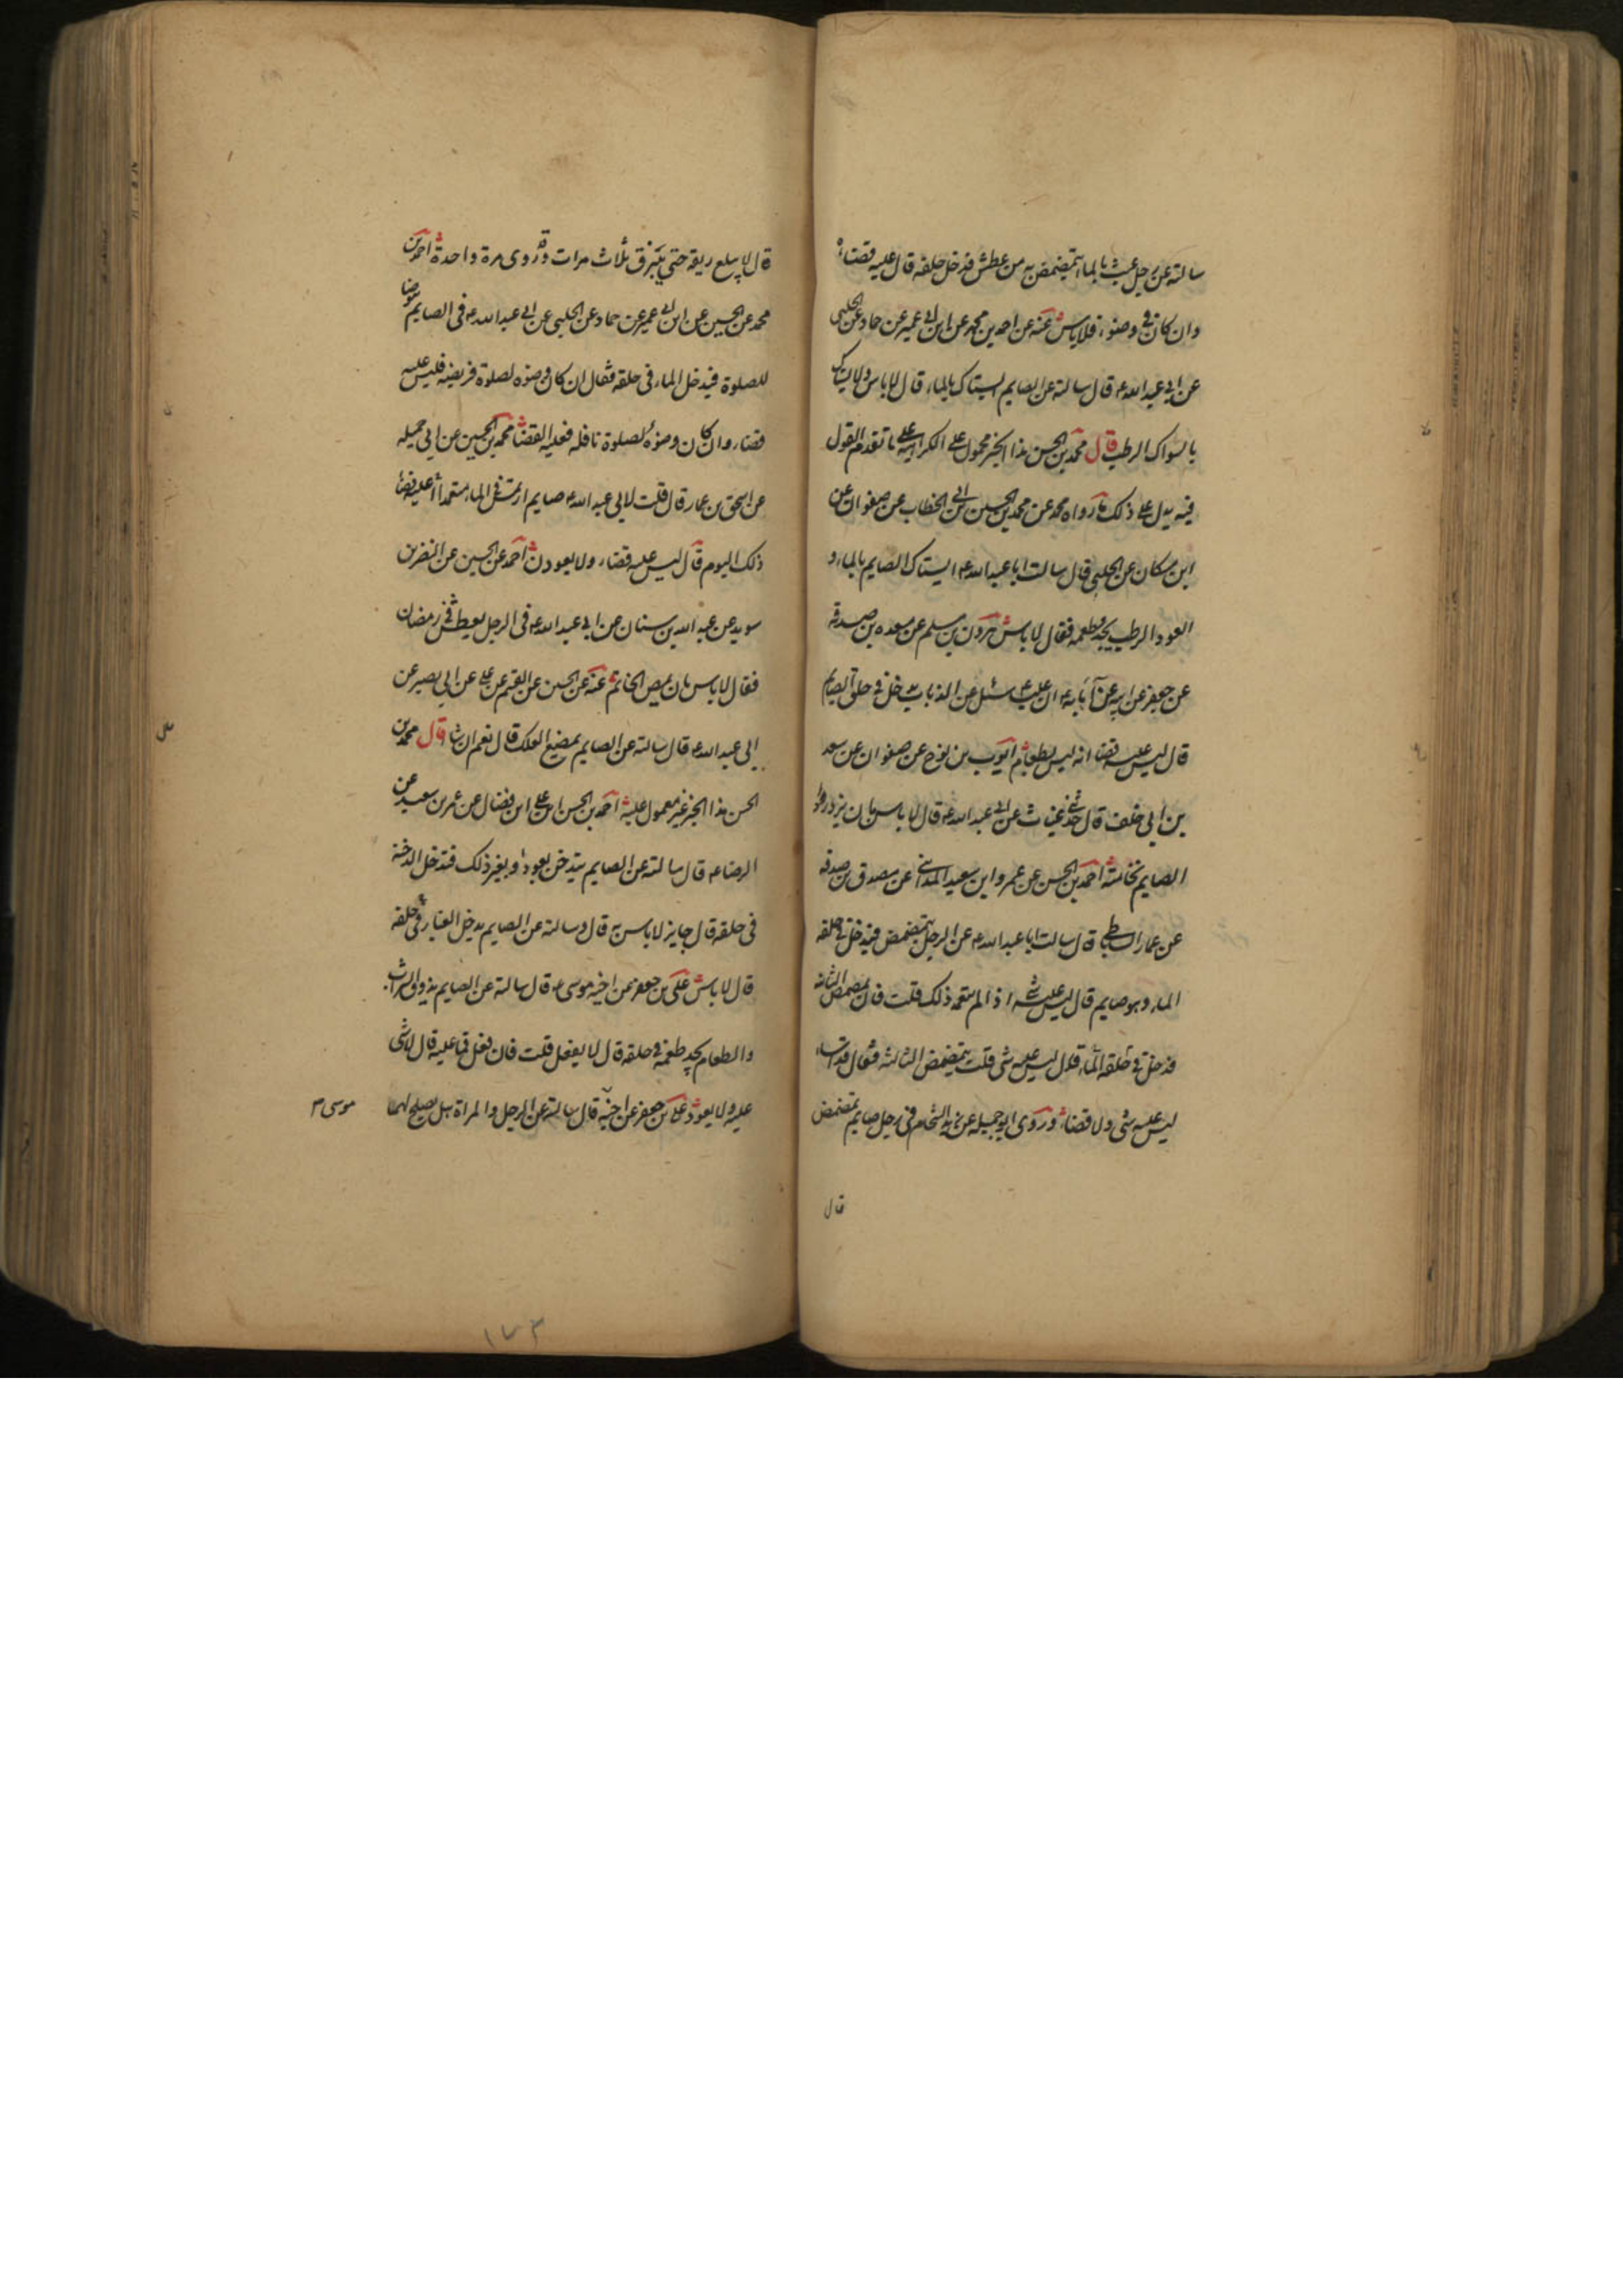 سالته عن رجل عبث بالماء يتمضمض به من عطش فدخل حلقه قال عليه قضاء
وان كان في وضوء فلا باس عنه عن احمد بن محمد عن ابن ابي عمير عن حماد عن الحلبي
عن ابي عبد الله ع قال سالته عن الصايم ايستاك بالماء قال لا باس ولا يستاك
بالسواك الرطب قال محمد بن الحسن هذا الخبر محمول علي الكراهية علي ما تقدم القول
فيه يدل علي ذلك ما رواه محمد عن محمد بن الحسين بن ابي الخطاب عن صفوان عن
ابن مسكان عن الحلبي قال سالت ابا عبد الله ع ايستاك الصايم بالماء و
العود الرطب يجد طعمه فقال لا باس هرون بن مسلم عن مسعده بن صدقة
عن جعفر عن ابيه عن آبائه ع ان عليا ع سئل عن الذباب يدخل في حلق الصايم
قال ليس عليه قضا انه ليس بطعام ايوب بن نوح عن صفوان عن سعد
بن ابي خلف قال حدثني غياث عن ابي عبد الله ع قال لا باس بان يزدرد
الصايم نخامته احمد بن الحسن عن عمرو ابن سعيد المدائني عن مصدق بن صدقه
عن عمار الساباطي قال سالت ابا عبد الله ع عن الرجل يتمضمض فيدخل في حلقه
الماء وهو صايم قال ليس عليه شي اذا لم يتعمد ذلك قلت فان تمضمض الثانيه
فدخل في حلقه الماء قال ليس عليه شي قلت يتمضمض الثالثه فقال قد اساء
ليس عليه شي ولا قضاء وروى ابو جميله عن زيد الشحام في رجل صايم تمضمض
قال
قال لا يبلع ريقه حتي يبزق ثلاث مرات وقد روى مرة واحدة احمد بن
محمد عن الحسين عن ابن ابي عمير عن حماد عن الحلبي عن ابي عبد الله ع في الصايم يتوضا
للصلوة فيدخل الماء في حلقه فقال ان كان وضوه لصلوة فريضه فليس عليه
قضاء وان كان وضوءه لصلوة نافله فعليه القضا محمد بن الحسين عن ابي جميله
عن اسحق بن عمار قال قلت لابي عبد الله ع صايم ارتمس في الماء متعمدا أعليه قضا
ذلك اليوم قال ليس عليه قضاء ولا يعودن احمد عن الحسين عن النضر بن
سويد عن عبد الله بن سنان عن ابي عبد الله ع في الرجل يعطش في رمضان
فقال لا باس بان يمص الخاتم عنه عن الحسين عن القسم عن علي عن ابي بصير عن
ابي عبد الله ع قال سالته عن الصايم يمضغ العلك قال نعم ان شا قال محمد بن
الحسن هذا الخبر غير معمول عليه احمد بن الحسن ابن علي ابن فضال عن عمر بن سعيد عن
الرضا ع قال سالته عن الصايم يتدخن بعود او بغير ذلك فتدخل الدخنة
في حلقه قال جايز لا باس به قال وسالته عن الصايم يدخل الغبار في حلقه
قال لا باس علي بن جعفر عن اخيه موسى ع قال سالته عن الصايم يذوق الشراب
والطعام يجد طعمه في حلقه قال لا يفعل قلت فان فعل فما عليه قال لا شي
عليه ولا يعود علي بن جعفر عن اخيه قال سالته عن الرجل والمراة هل يصلح لهما
موسى ع
١٧٣